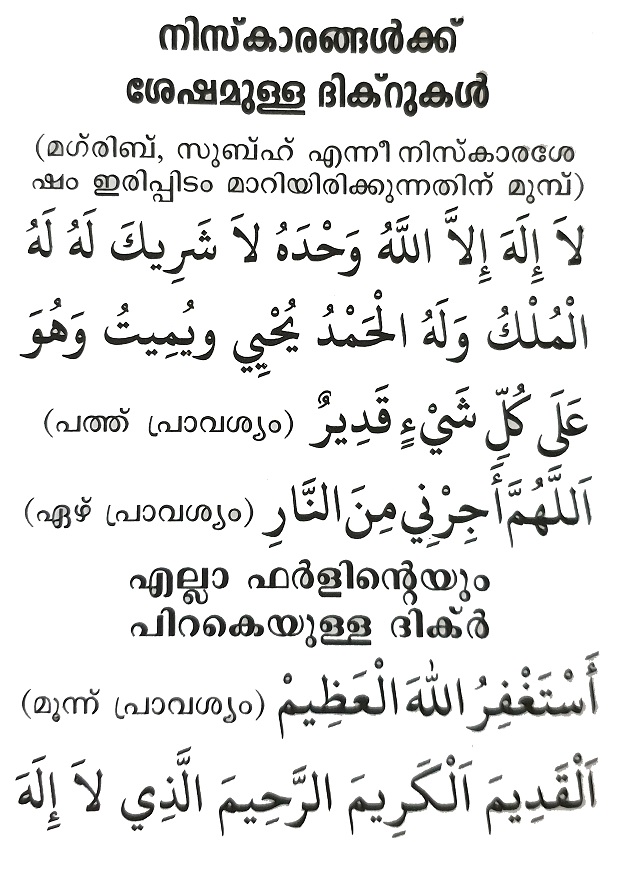 നിസ്കാരങ്ങൾക്ക്
ശേഷമുള്ള ദിക്റുകൾ
(മഗ്‌രിബ്, സുബ്ഹ് എന്നീ നിസ്കാരശേ
ഷം ഇരിപ്പിടം മാറിയിരിക്കുന്നതിന് മുമ്പ്)
لاَ إِلَهَ إِلاَّ اللَّهُ وَحْدَهُ لاَ شَرِيكَ لَهُ لَهُ
الْمُلْكُ وَلَهُ الْحَمْدُ يُحْيِي ويُمِيتُ وَهُوَ
عَلَى كُلِّ شَيْءٍ قَدِيرٌ (പത്ത് പ്രാവശ്യം)
اَللَّهُمَّ أَجِرْنِي مِنَ النَّارِ (ഏഴ് പ്രാവശ്യം)
എല്ലാ ഫർളിന്റെയും
പിറകെയുള്ള ദിക്ർ
أَسْتَغْفِرُ اللهَ الْعَظِيمْ (മൂന്ന് പ്രാവശ്യം)
اَلْقَدِيمَ اَلْكَرِيمَ الرَّحِيمَ الَّذِي لاَ إِلَهَ